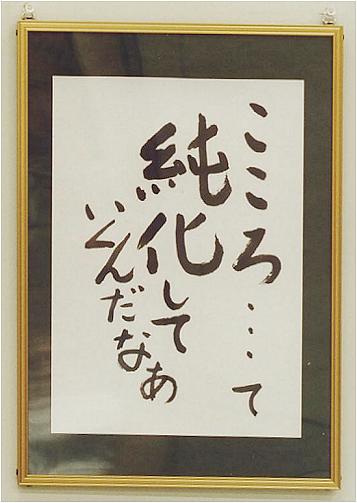 こころ…て
純化して
いくんだなあ